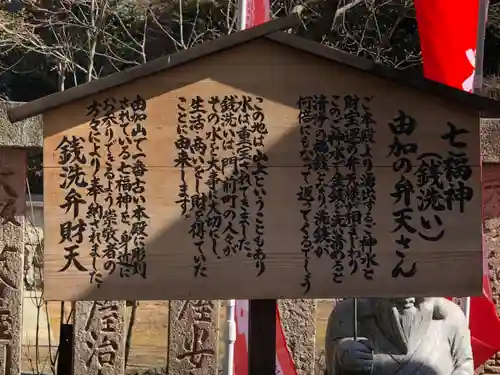 七福神
(銭洗い)
由加の弁天さん
ご本殿より湧出するご神水と
財宝運の弁天様が相まわり
この神水で金銭を清めると
清浄の福銭となり、洗銭が
何倍にもなって返ってくるでしょう
この地は山上ということもあり
水は重宝されてきました。
銭洗いは、門前町の人々が
その水を大事に大切に
生活し商いをし財を得ていた
ことに由来します。
由加山で一番古い本殿に彫刻
されている七福神を、身近に
お参りできるよう岩畝者の
方々により奉納されました
銭洗弁財天